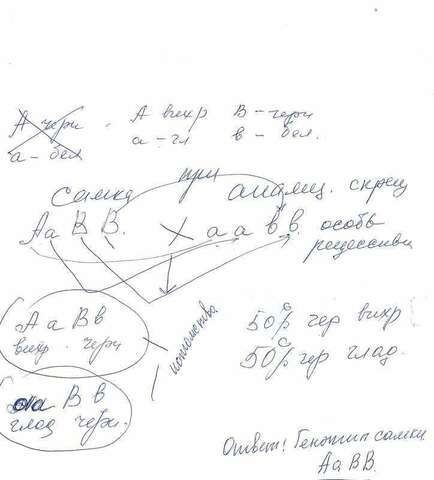 А чёрн
а - бел
А вихр
а - гл
В - черн
в - бел.
самка при анализ. скрещ
АаВВ. × аавв. особь
рецессивн
АаВв
вихр. черн
ааВв
глад черн.
потомство.
50% чер вихр
50% чер глад.
Ответ! Генотип самки
АаВВ.